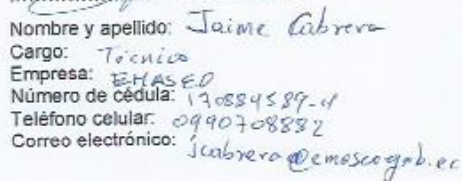 Nombre y apellido: Jaime Cabrera
Cargo: Técnico
Empresa: EMASEO
Número de cédula: 170884589-4
Teléfono celular: 0990708882
Correo electrónico: jcabrera@emaseo.gob.ec